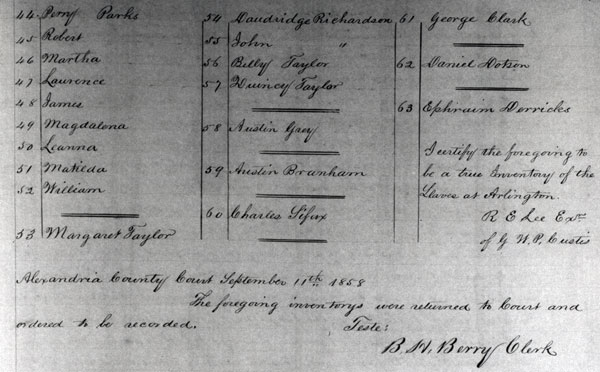 44 Perry Parks
45 Robert
46 Martha
47 Laurence
48 James
49 Magdalena
50 Leanna
51 Matilda
52 William
53 Margaret Taylor
54 Daudridge Richardson
55 John "
56 Billy Taylor
57 Quincy Taylor
58 Austin Grey
59 Austin Branham
60 Charles Sifax
61 George Clark
62 Daniel Dotson
63 Ephraim Derricks
I certify the foregoing to
be a true Inventory of the
Slaves at Arlington.
R E Lee Exr
of G W. P. Custis
Alexandria County Court September 11th 1858
The foregoing inventorys were returned to Court and
ordered to be recorded. Teste:
B. H. Berry Clerk